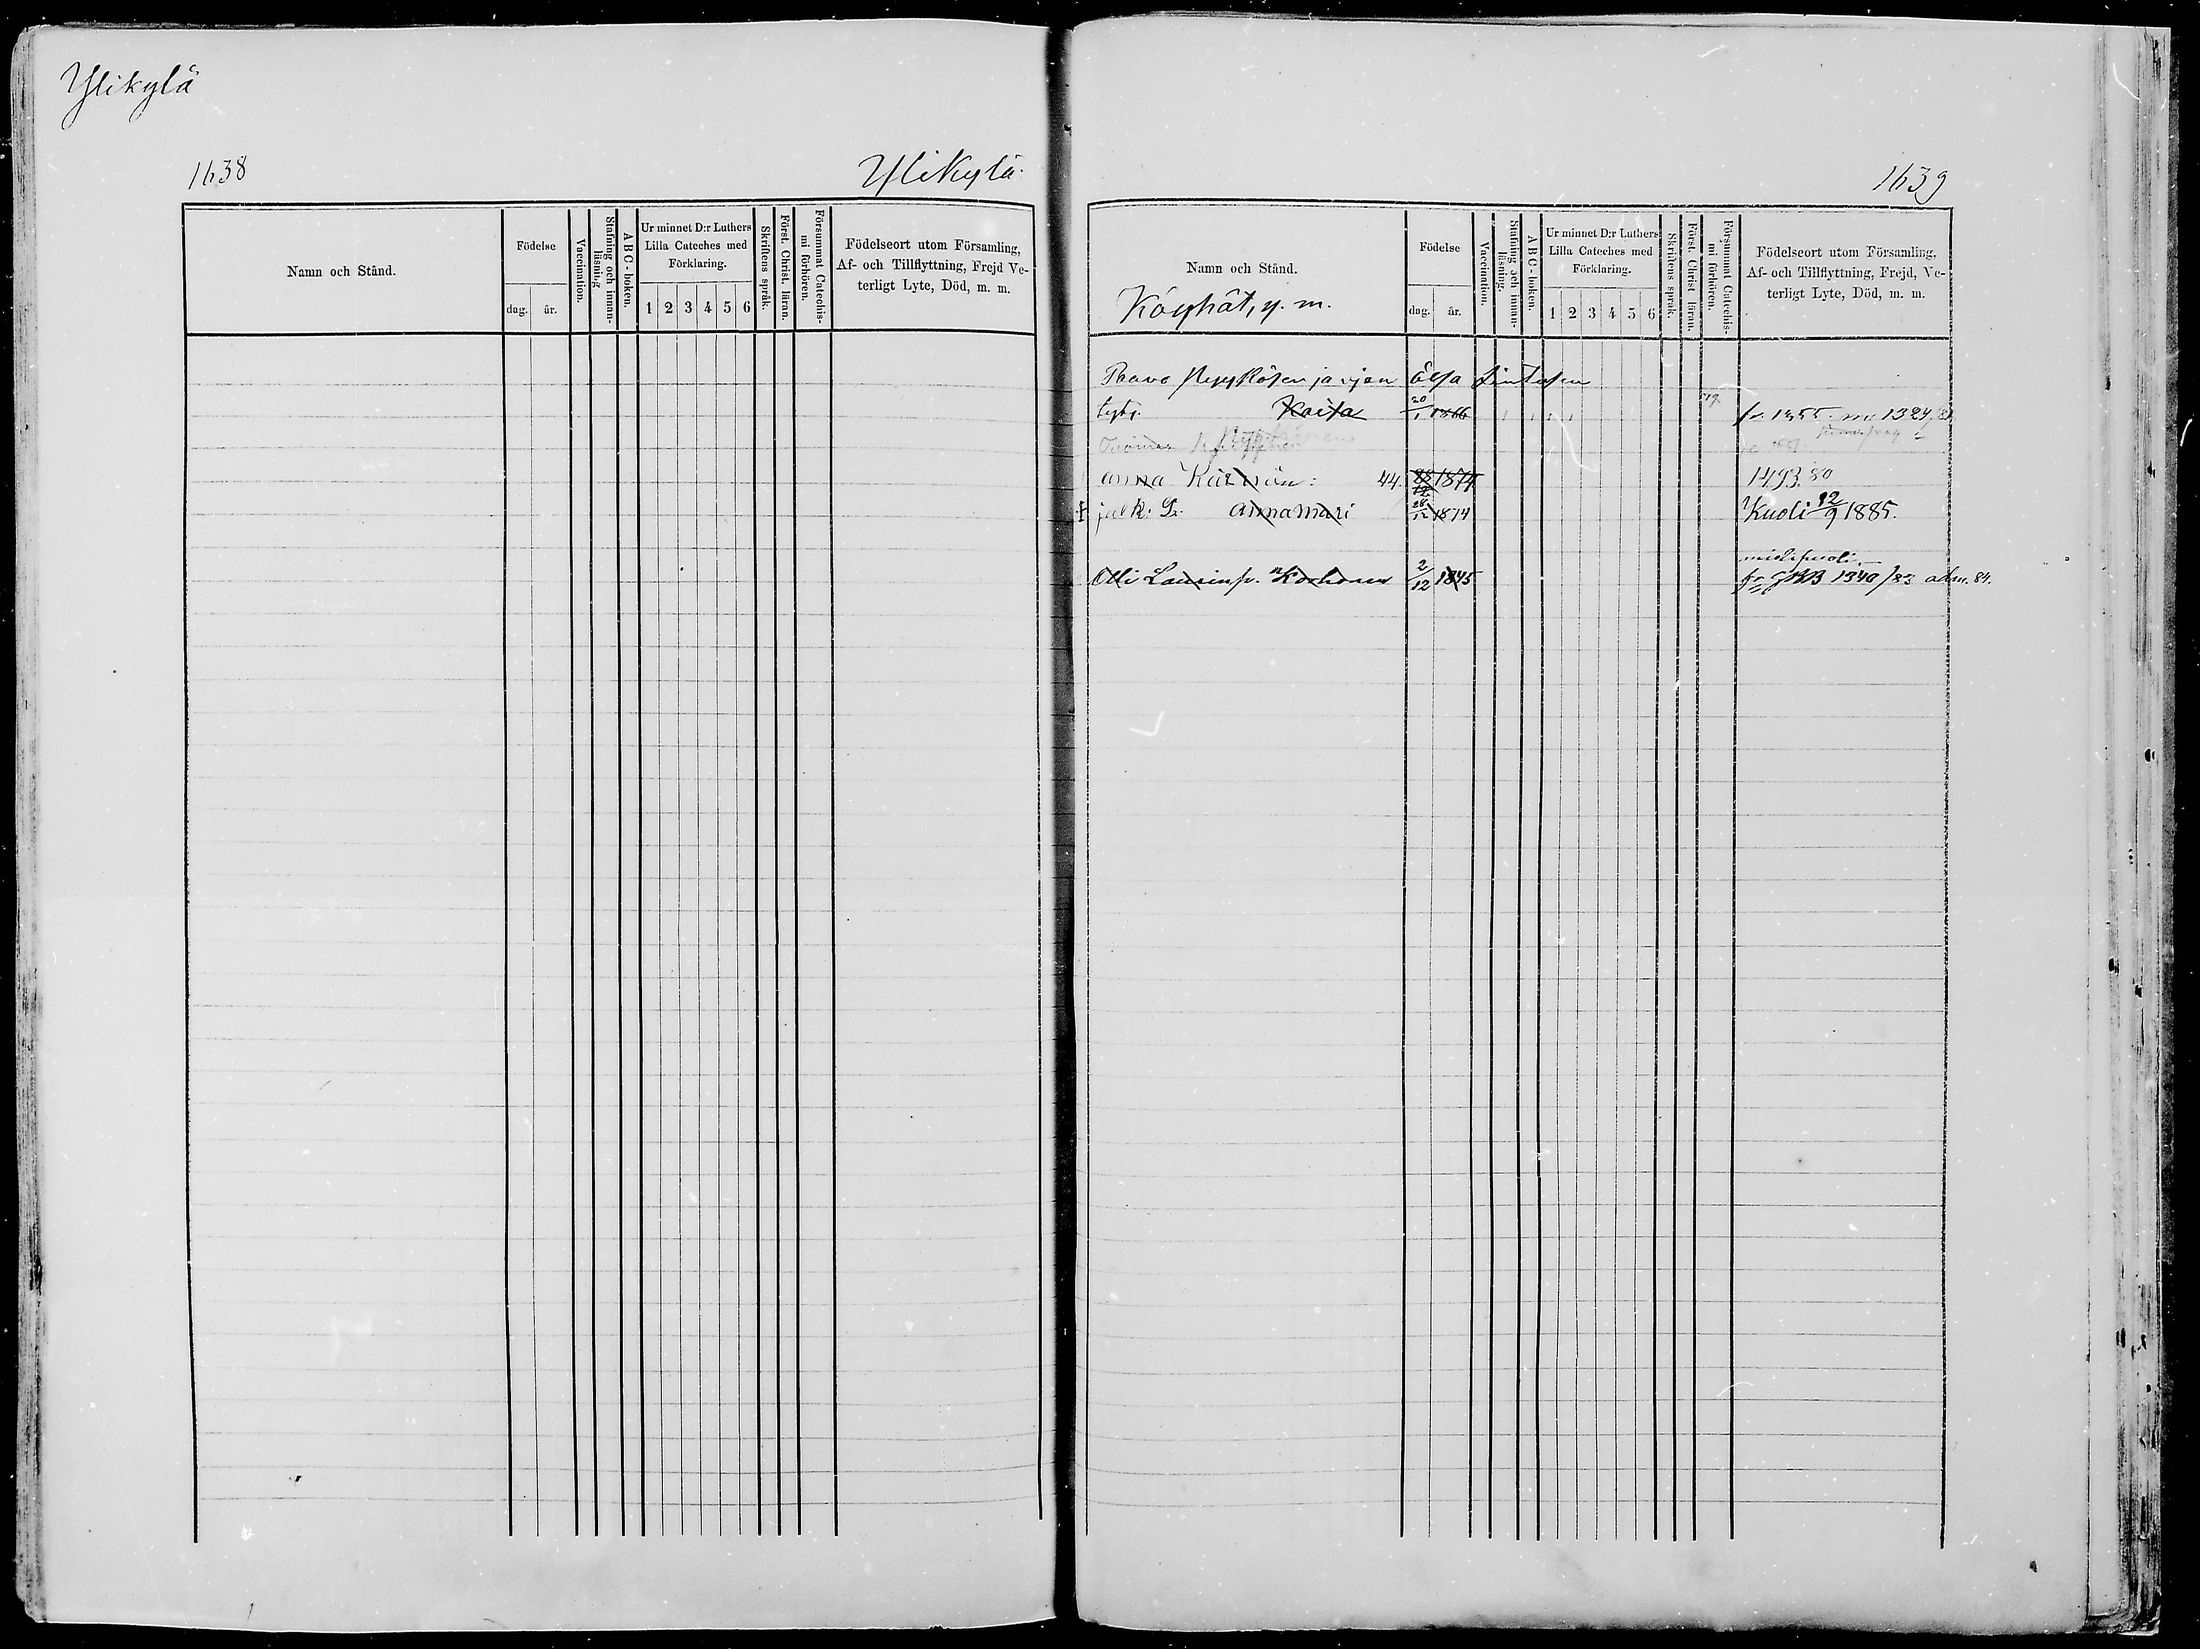 Ylikylä
1638
Ylikylä
Namn och Stånd.
Födelse
dag.
år.
Vaccination.
Stafning och innan-
läsning
A B C - boken.
Ur minnet D:r Luthers
Lilla Cateches med
Förklaring.
1 2 3 4 5 6
Skriftens språk.
Först. Christ. läran.
Försummat Catechis-
mi förhören.
Födelseort utom Församling,
Af- och Tillflyttning, Frejd Ve-
terligt Lyte, Död, m. m.
1639
Namn och Stånd.
Köyhät, y. m.
Födelse
dag.
år.
Vaccination.
Stafning och innan-
läsning.
A B C - boken.
Ur minnet D:r Luthers
Lilla Cateches med
Förklaring.
1 2 3 4 5 6
Skriftens språk.
Först. Christ läran.
Försummat Catechis-
mi förhören.
Födelseort utom Församling,
Af- och Tillflyttning, Frejd, Ve-
terligt Lyte, Död, m. m.
Paavo ja Elsa
Kaisa 20/1 1866 1355 1324
Anna 44. 1874 1493.80
Annamari 28/12 1874 Kuoli 12/9 1885.
Olli Korhonen 2/12 1845 1340/83 84.